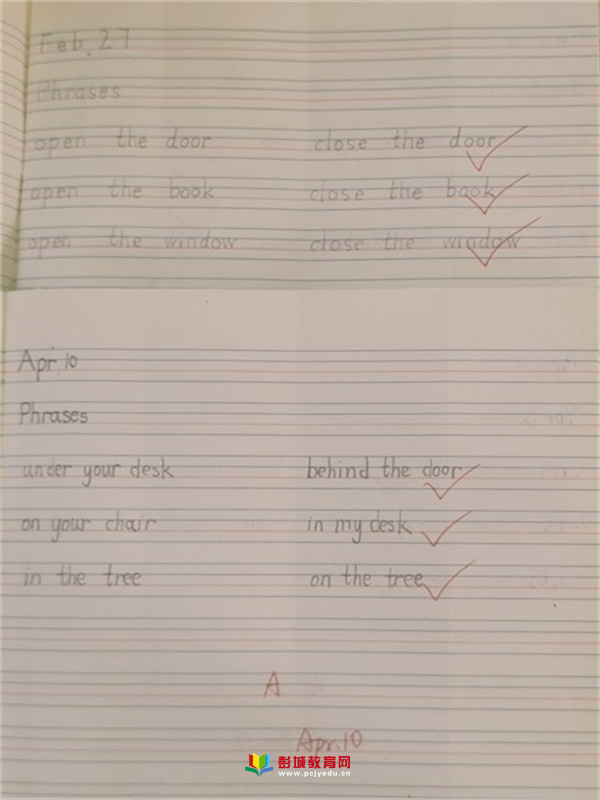 Feb. 27
Phrases
open the door close the door
open the book close the book
open the window close the window
Apr. 10
Phrases
under your desk behind the door
on your chair in my desk
in the tree on the tree
A
Apr. 10
彭城教育网
www.pcjyedu.cn